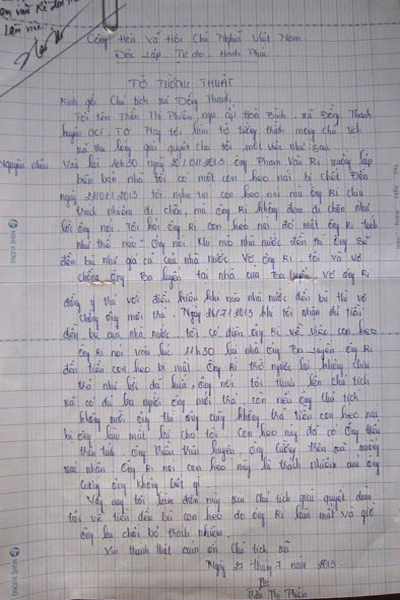 Cộng Hòa Xã Hội Chủ Nghĩa Việt Nam
Độc Lập Tự do Hạnh Phúc
TỜ TƯỜNG THUẬT
Kính gởi Chủ tịch xã Đồng Thạnh
Tôi tên Trần Thị Phiên, ngụ ấp Hòa Bình xã Đồng Thạnh
huyện GCT TG Nay tôi làm tờ tường trình mong chủ tịch
xã vui lòng giải quyết cho tôi một việc như sau
Nguyên nhân Vào lúc ngày 2013 ông Phạm Văn Ri xuống lập
biên bản nhà tôi có một con heo nái bị chết Đến
ngày 2013 tôi nghe tin con heo nái mà ông Ri chịu
trách nhiệm đi chôn, mà ông Ri không đem đi chôn như
lời ông nói. Tôi hỏi ông Ri con heo nái đó mất ông Ri tính
như thế nào. Ông nói khi nào nhà nước đền thì ông sẽ
đền bù như giá cả của nhà nước. Vợ ông Ri, tôi và vợ
chồng ông Ba luyện tại nhà của Ba luyện. Vợ ông Ri
đồng ý trả với điều kiện khi nào nhà nước đền bù thì vợ
chồng ông mới trả. Ngày 2013 khi tôi nhận đủ tiền
đền bù của nhà nước, tôi có điện ông Ri về việc con heo
ông Ri nói vào lúc 11h30 tại nhà ông Ba luyện ông Ri
đều tiền con heo bị mất. Ông Ri trở ngược lại không chịu
trả như lời đã hứa, ông nói tôi thưa lên chủ tịch
xã có đủ ba người ông mới trả. còn nếu ông Chủ tịch
không mời ông thì ông cũng không trả tiền con heo nái
bị ông làm mất lại cho tôi. Con heo này đã có ông
thú tỉnh. ông thú huyện, ông xã xuống
xác nhận. Ông Ri nói con heo này là trách nhiệm của ông
ông không biết gì.
Vậy nay tôi làm đơn này xin Chủ tịch giải quyết đơn
tôi về tiền đền bù con heo do ông Ri làm mất và giờ
còn lại chối bỏ trách nhiệm.
Xin thành thật cám ơn Chủ tịch xã
Ngày 27 tháng 7 năm 2013
Trần Thị Phiên